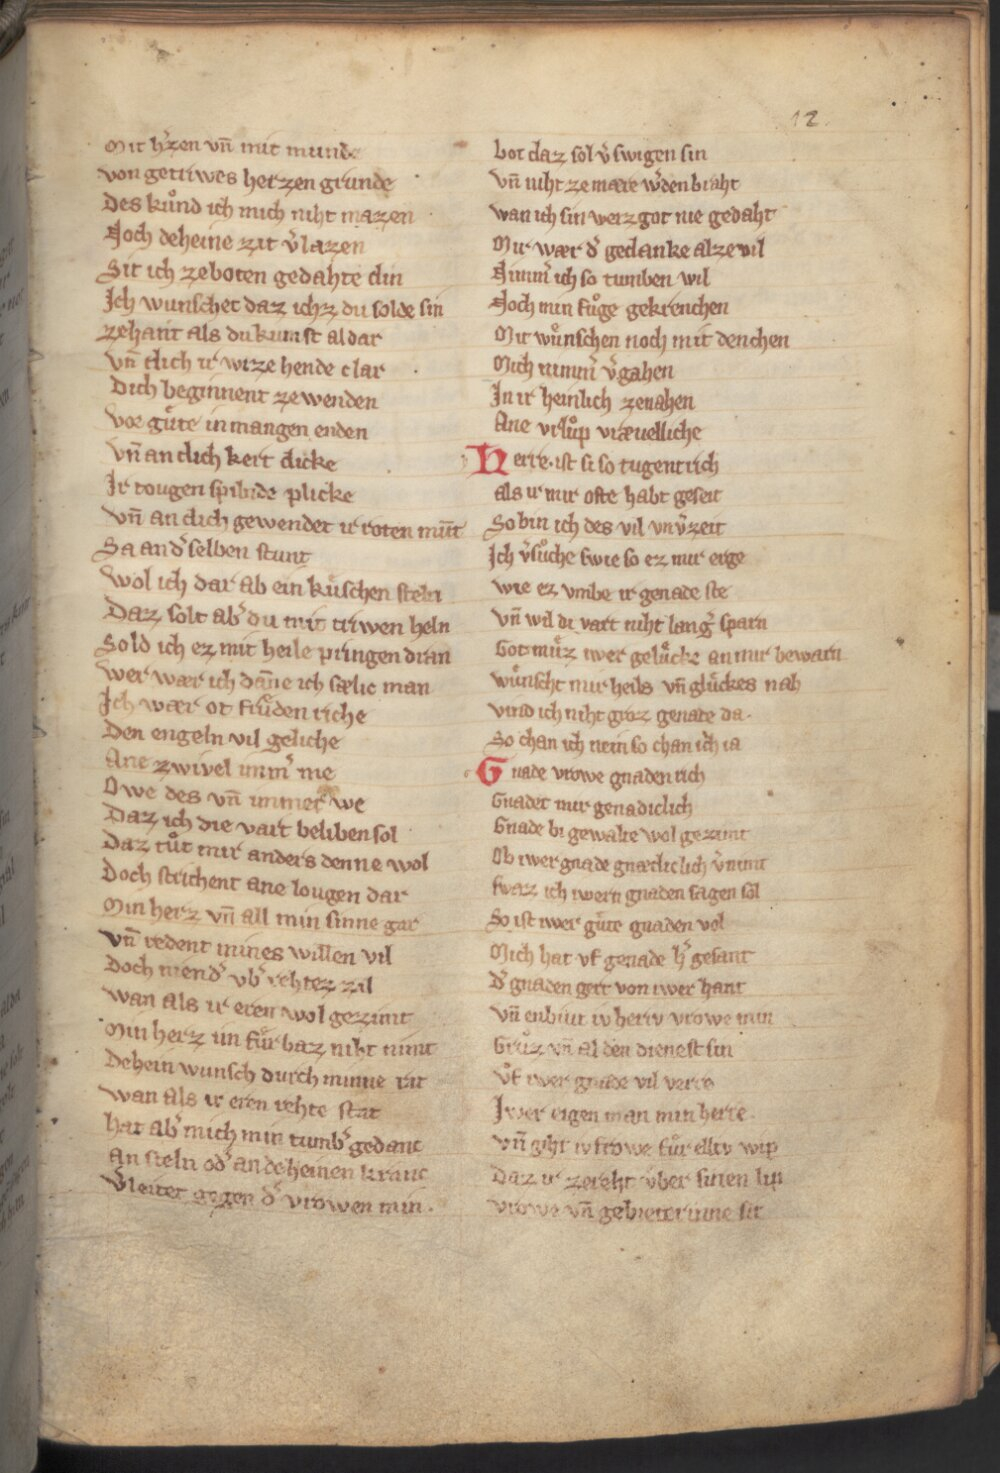 12
Mit h'zen vn̄ mit munde
von getriwes herzen grunde
Des kuͦnd ich mich niht mazen
Noch deheine zit v'lazen
Sit ich ze boten gedahte din
Ich wunschet daz ichz du solde sin
zehant als du kumst aldar
vn̄ dich ir wize hende clar
Dich beginnent zewenden
vor guͤte in mangen enden
vn̄ an dich kert dicke
Ir tougen spilnde plicke
vn̄ an dich gewendet ir roten mūt
Sa an d' selben stunt
wol ich dar ab ein kuͤschen steln
Daz solt ab' du mit triwen heln
Sold ich ez mit heile pringen dran
wer wær ich dan̄e ich sælic man
Ich wær ot fruͤden riche
Den engeln vil geliche
Ane zwivel imm' me
Owe des vn̄ immer we
Daz ich die vart beliben sol
Daz tuͦt mir anders denne wol
Doch strichent ane lougen dar
Min herz vn̄ all min sinne gar
vn̄ redent mines willen vil
Doch niend' vb' rehtez zil
wan als ir eren wol gezimt
Min herz im fuͤr baz niht nimt
Dehein wunsch durch minne rat
wan als ir eren rehte stat
hat ab' mich min tumb' gedanc
An steln od' an deheinen kranc
v'leitet gegen d' vrowen min.
bot daz sol v'swigen sin
vn̄ niht ze mære w'den braht
wan ich sin werz got nie gedaht
Mir wær d' gedanke alze vil
Nimm' ich so tumben wil
Noch min fuͦge gekrenchen
Mit wuͤnschen noch mit denchen
Mich nimm' v'gahen
In ir heinlich zenahen
Ane vrluͦp vræuelliche
Herre ist si so tugentrich
als ir mir ofte habt geseit
So bin ich des vil vnv'zeit
Ich v'suͦche swie so ez mir erge
wie ez vmbe ir genade ste
vn̄ wil di vart niht lang' sparn
Got muͤz iwer geluͤcke an mir bewarn
wuͤnscht mir heils vn̄ gluͤckes nah
vind ich niht groz genade da.
So chan ich nein so chan ich ia
Gnade vrowe gnaden rich
Gnadet mir genædiclich
Gnade bi gewalte wol gezimt
Ob iwer gnade gnædiclich v'nimt
swaz ich iwern gnaden sagen sol
So ist iwer guͤte gnaden vol
Mich hat vf genade h' gesant
d' gnaden gert von iwer hant
vn̄ enbiut iv herin vrowe min
Gruͦz vn̄ al den dienest sin
vͦf iwer gnade vil verre
Iwer eigen man min herre.
vn̄ giht iv frowe fuͤr elliv wip
Daz ir zereht vͤber sinen lip
vrowe vn̄ gebieterinne sit